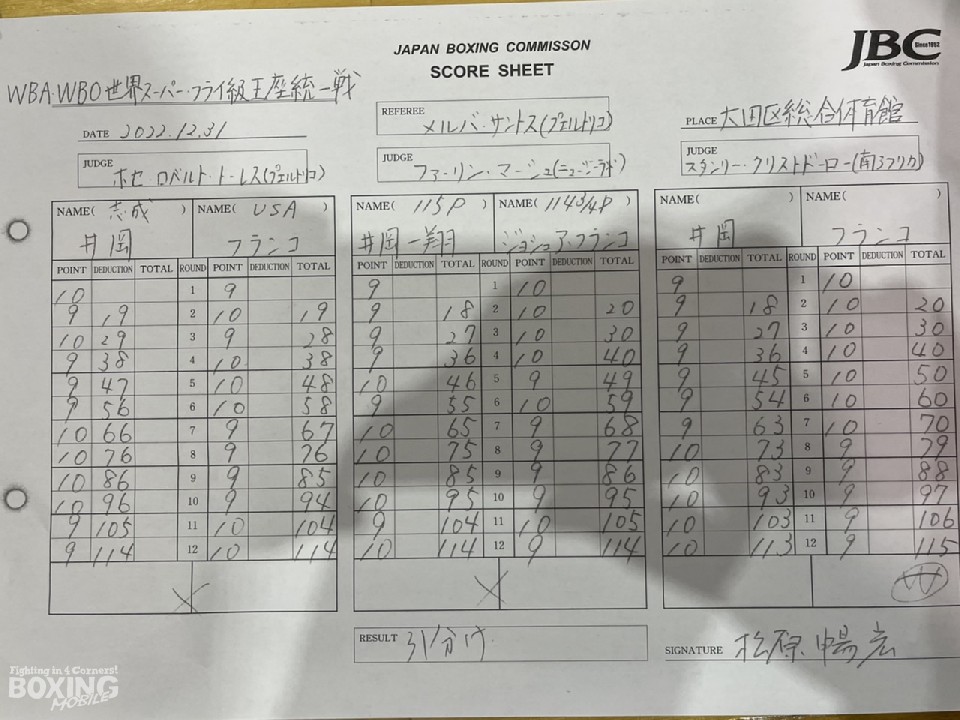 JAPAN BOXING COMMISSON
SCORE SHEET
JBC Since 1952
Japan Boxing Commission
WBA・WBO世界スーパー・フライ級王座統一戦
DATE 2022.12.31
REFEREE メルバ・サントス(プエルトリコ)
PLACE 大田区総合体育館
JUDGE ホセ ロベルト・トーレス(プエルトリコ)
JUDGE ファーリン・マーシュ(ニュージーランド)
JUDGE スタンリー・クリストドーロー(南アフリカ)
NAME( 志成 ) NAME( USA ) NAME( 115P ) NAME( 114 3/4P ) NAME( ) NAME( )
井岡 フランコ 井岡一翔 ジョシュア・フランコ 井岡 フランコ
POINT DEDUCTION TOTAL ROUND POINT DEDUCTION TOTAL POINT DEDUCTION TOTAL ROUND POINT DEDUCTION TOTAL POINT DEDUCTION TOTAL ROUND POINT DEDUCTION TOTAL
10 1 9 9 1 10 9 1 10
9 19 2 10 19 9 18 2 10 20 9 18 2 10 20
10 29 3 9 28 9 27 3 10 30 9 27 3 10 30
9 38 4 10 38 9 36 4 10 40 9 36 4 10 40
9 47 5 10 48 10 46 5 9 49 9 45 5 10 50
9 56 6 10 58 9 55 6 10 59 9 54 6 10 60
10 66 7 9 67 10 65 7 9 68 9 63 7 10 70
10 76 8 9 76 10 75 8 9 77 10 73 8 9 79
10 86 9 9 85 10 85 9 9 86 10 83 9 9 88
10 96 10 9 94 10 95 10 9 95 10 93 10 9 97
9 105 11 10 104 9 104 11 10 105 10 103 11 9 106
9 114 12 10 114 10 114 12 9 114 10 113 12 9 115
X X W
RESULT 引分け
SIGNATURE 松原 暢宏
Fighting in 4 Corners!
BOXING
MOBILE